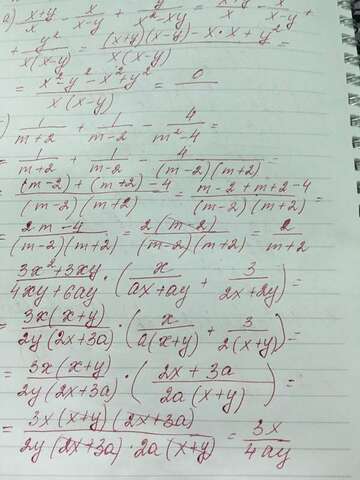 а) (x+y)/x - x/(x-y) + y²/(x²-xy) = (x+y)/x - x/(x-y) +
+ y²/(x(x-y)) = ((x+y)(x-y) - x·x + y²)/(x(x-y)) =
= (x²-y²-x²+y²)/(x(x-y)) = 0
) 1/(m+2) + 1/(m-2) - 4/(m²-4) =
= 1/(m+2) + 1/(m-2) - 4/((m-2)(m+2)) =
= ((m-2)+(m+2)-4)/((m-2)(m+2)) = (m-2+m+2-4)/((m-2)(m+2)) =
= (2m-4)/((m-2)(m+2)) = 2(m-2)/((m-2)(m+2)) = 2/(m+2)
(3x²+3xy)/(4xy+6ay) · (x/(ax+ay) + 3/(2x+2y)) =
= 3x(x+y)/(2y(2x+3a)) · (x/(a(x+y)) + 3/(2(x+y))) =
= 3x(x+y)/(2y(2x+3a)) · ((2x+3a)/(2a(x+y))) =
= 3x(x+y)(2x+3a)/(2y(2x+3a)·2a(x+y)) = 3x/(4ay)